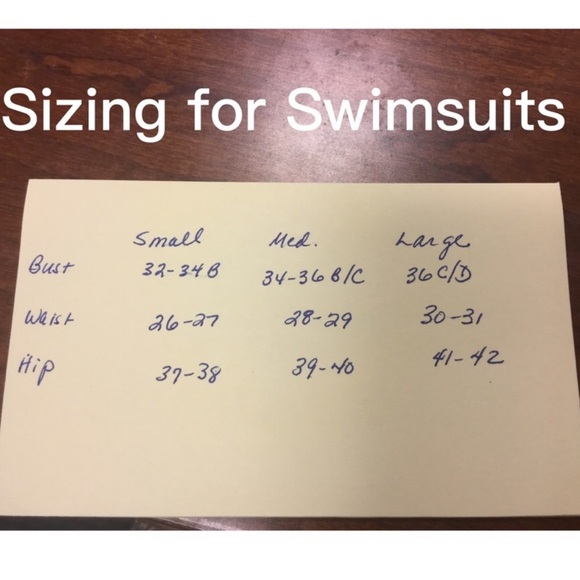 Sizing for Swimsuits
Small Med. Large
Bust 32-34B 34-36 B/C 36 C/D
Waist 26-27 28-29 30-31
Hip 37-38 39-40 41-42